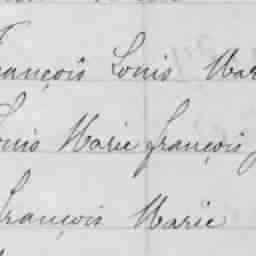 François Louis Mar
Louis Marie François
François Marie